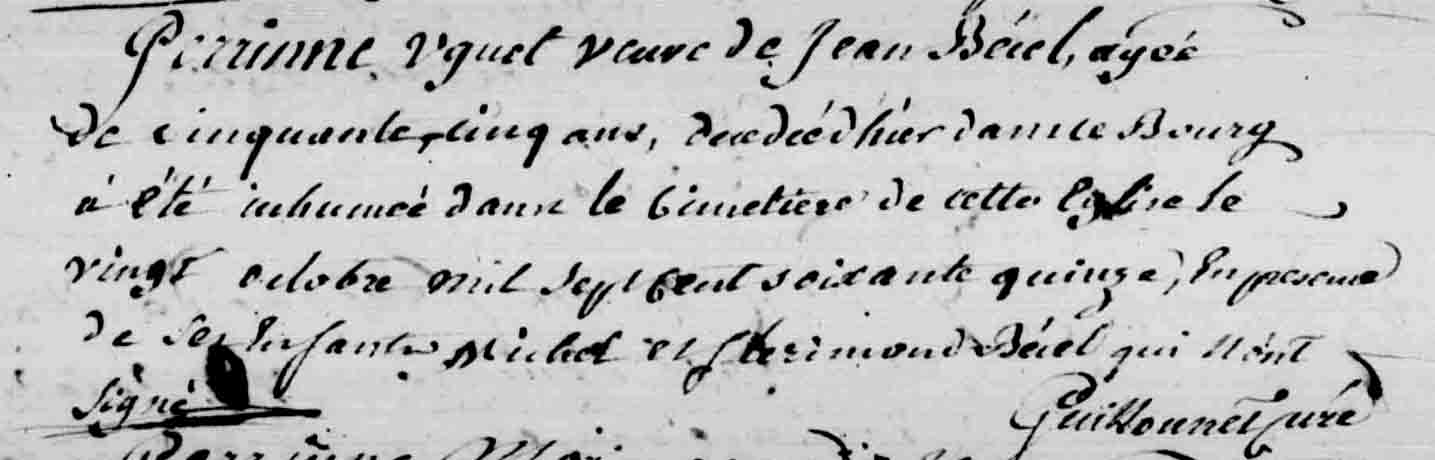 Perrinne Uguet veuve de Jean Béiel, agée
de cinquante-cinq ans, decedeé d'hier dans le Bourg
à été inhumeé dans le Cimetiere de cette Eglise le
vingt octobre mil sept Cent soixante quinze, En presence
de ses Enfants Michel et Béiel qui n'ont
signé
Guittonnet Curé
Perrinne